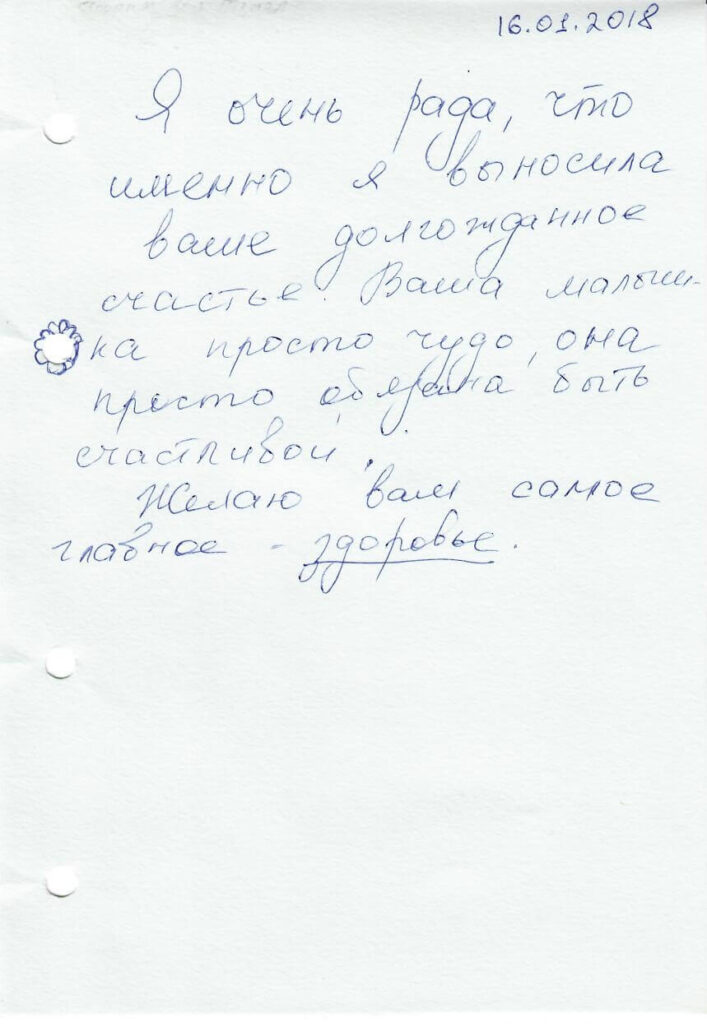 16.01.2018
Я очень рада, что
именно я выносила
ваше долгожданное
счастье. Ваша малыш-
ка просто чудо, она
просто обязана быть
счастливой.
Желаю вам самое
главное - здоровье.